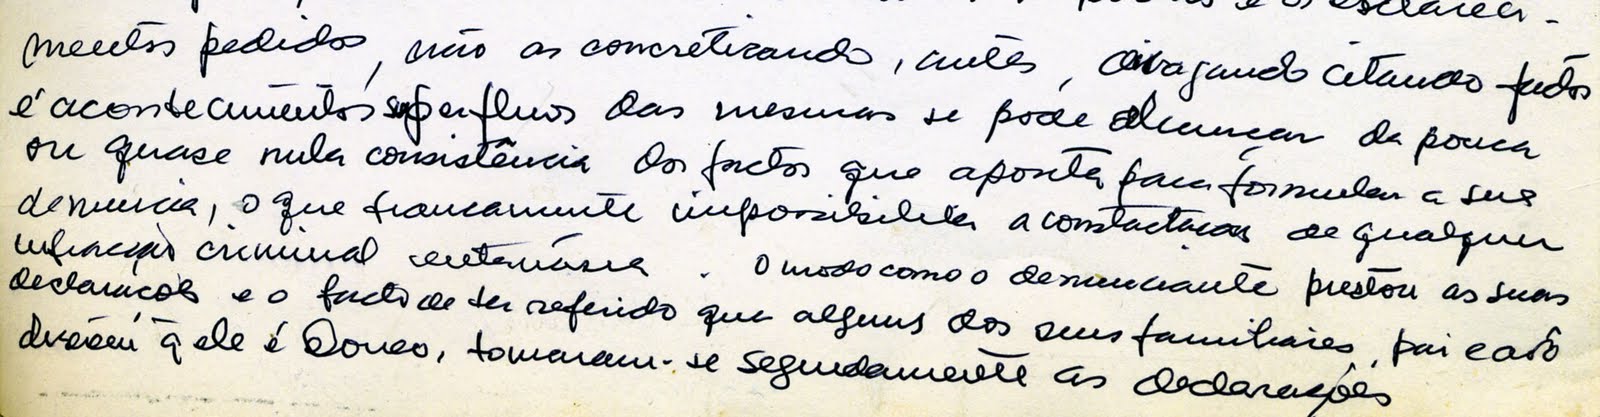 e os esclareci-
mentos pedidos, não as concretizando, antes, divagando citando factos
é acontecimentos superfluos das mesmas se pode alcançar da pouca
ou quase nula consistência dos factos que aponta para formular a sua
denuncia, o que francamente impossibilita a constactação de qualquer
infracção criminal . O modo como o denunciante prestou as suas
declarações e o facto de ter referido que alguns dos seus familiares, pai e avô
dizerem q̄ ele é Douco, tomaram-se seguidamente as declarações